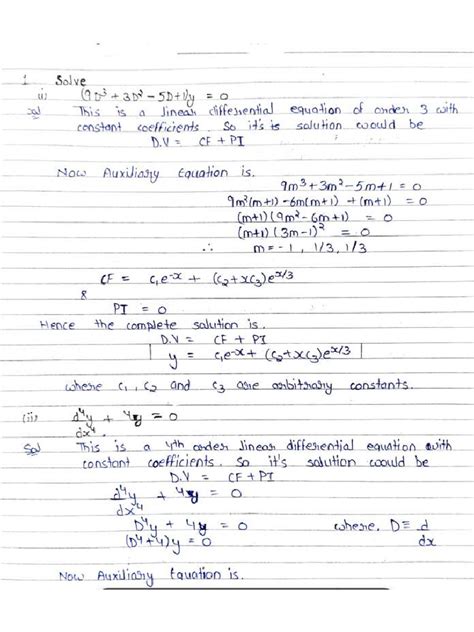 1. Solve
(i) (9D³ + 3D² - 5D + 1)y = 0
Sol This is a linear differential equation of order 3 with
constant coefficients. So it's is solution would be
D.V = CF + PI
Now Auxiliary Equation is.
9m³ + 3m² - 5m + 1 = 0
9m²(m+1) - 6m(m+1) + (m+1) = 0
(m+1)(9m² - 6m + 1) = 0
(m+1)(3m-1)² = 0
∴ m = -1, 1/3, 1/3
CF = c₁e^-x + (c₂+xc₃)e^x/3
&
PI = 0
Hence the complete solution is.
D.V = CF + PI
y = c₁e^-x + (c₂+xc₃)e^x/3
where c₁, c₂ and c₃ are arbitrary constants.
(ii) d⁴y/dx⁴ + 4y = 0
Sol This is a 4th order linear differential equation with
constant coefficients. So it's solution would be
D.V = CF + PI
d⁴y/dx⁴ + 4y = 0
D⁴y + 4y = 0 where, D ≡ d/dx
(D⁴+4)y = 0
Now Auxiliary Equation is.